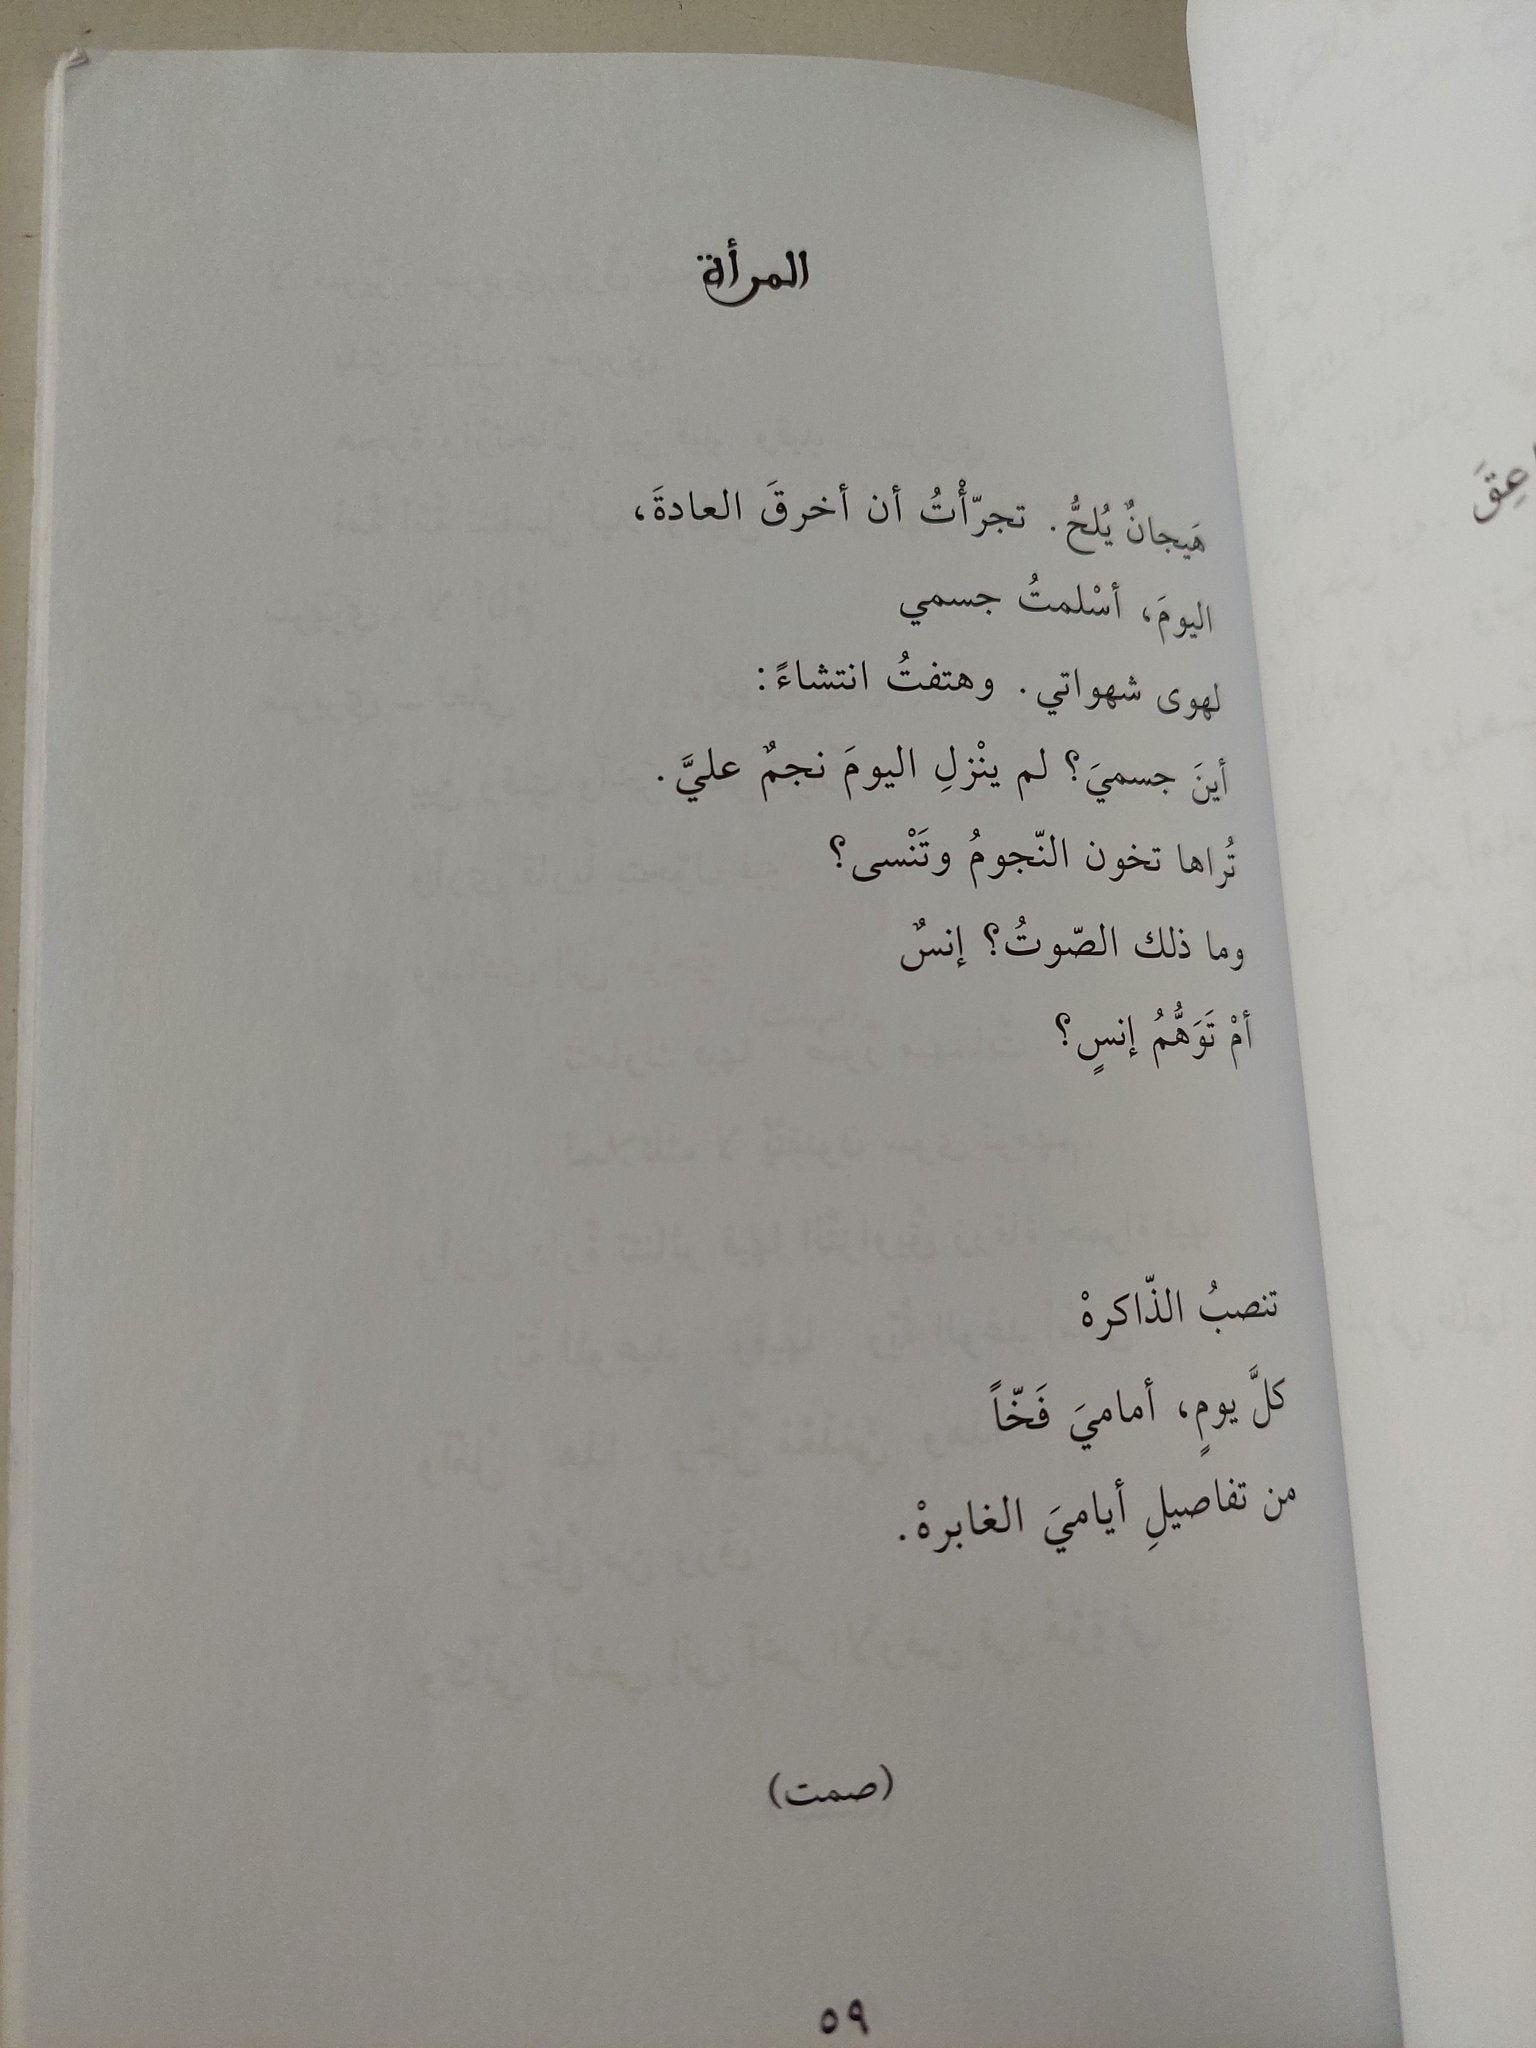 المرأة
هَيجانٌ يُلحُّ. تجرّأْتُ أن أخرقَ العادةَ،
اليومَ، أسْلمتُ جسمي
لهوى شهواتي. وهتفتُ انتشاءً:
أينَ جسميَ؟ لم ينْزلِ اليومَ نجمٌ عليَّ.
تُراها تخون النّجومُ وتَنْسى؟
وما ذلك الصّوتُ؟ إنسٌ
أمْ تَوَهُّمُ إنسٍ؟
تنصبُ الذّاكرهْ
كلَّ يومٍ، أماميَ فَخّاً
من تفاصيلِ أياميَ الغابرهْ.
(صمت)
٥٩